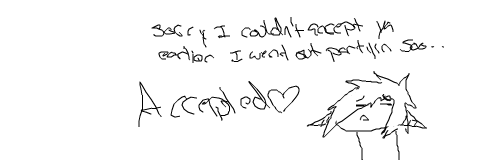 sorry I couldn't accept ya
earlier I went out partyin soo..
Accepted♡